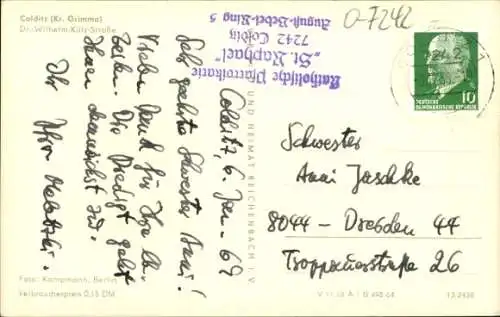 Colditz (Kr. Grimma)
Dr.-Wilhelm-Külz-Straße
Katholische Pfarrvikarie
"St. Raphael"
7242 Colditz
August-Bebel-Ring 5
O-7242
10
DEUTSCHE
DEMOKRATISCHE REPUBLIK
Colditz, 6. Jan. 69
Sehr geehrte Schwester Anni!
Vielen Dank für Ihre lb.
Zeilen. Die Predigt geht
Ihnen demnächst zu.
Ihr
UND HEIMAT REICHENBACH I. V.
Schwester
Anni Jaschke
8044 - Dresden 44
Tsoppauerstraße 26
Foto: Kampmann, Berlin
Verbraucherpreis 0,15 DM